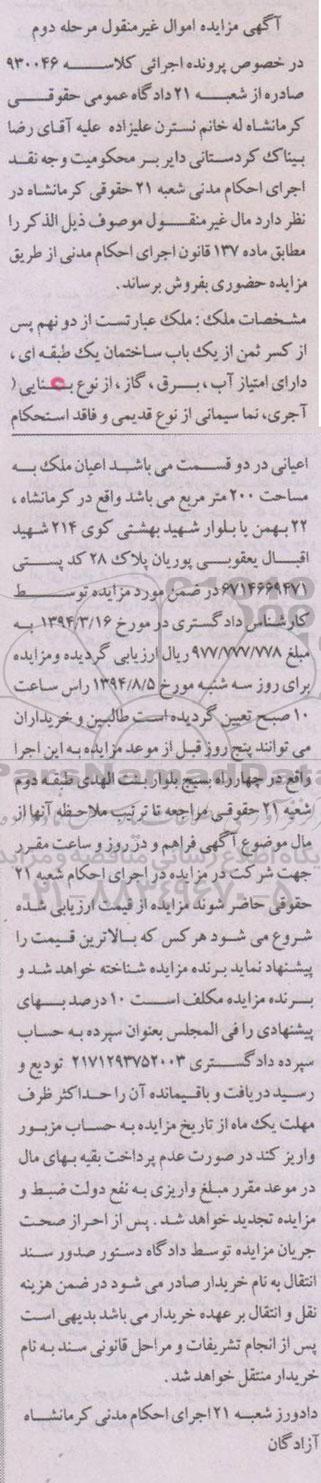 آگهی مزایده اموال غیرمنقول مرحله دوم
در خصوص پرونده اجرائی کلاسه ۹۳۰۰۴۶
صادره از شعبه ۲۱ دادگاه عمومی حقوقی
کرمانشاه له خانم نسترن علیزاده علیه آقای رضا
بیناک کردستانی دایر بر محکومیت وجه نقد
اجرای احکام مدنی شعبه ۲۱ حقوقی کرمانشاه در
نظر دارد مال غیرمنقول موصوف ذیل الذکر را
مطابق ماده ۱۳۷ قانون اجرای احکام مدنی از طریق
مزایده حضوری بفروش برساند.
مشخصات ملک: ملک عبارتست از دو نهم پس
از کسر ثمن از یک باب ساختمان یک طبقه ای،
دارای امتیاز آب، برق، گاز، از نوع بنایی (
آجری، نما سیمانی از نوع قدیمی و فاقد استحکام
اعیانی در دو قسمت می باشد اعیان ملک به
مساحت ۲۰۰ متر مربع می باشد واقع در کرمانشاه،
۲۲ بهمن یا بلوار شهید بهشتی کوی ۲۱۴ شهید
اقبال یعقوبی پوریان پلاک ۲۸ کد پستی
۶۷۱۴۶۶۹۴۷۱ در ضمن مورد مزایده توسط
کارشناس دادگستری در مورخ ۱۳۹۴/۳/۱۶ به
مبلغ ۹۷۷/۷۷۷/۷۷۸ ریال ارزیابی گردیده ومزایده
برای روز سه شنبه مورخ ۱۳۹۴/۸/۵ راس ساعت
۱۰ صبح تعیین گردیده است طالبین و خریداران
می توانند پنج روز قبل از موعد مزایده به این اجرا
واقع در چهارراه بسیج بلوار بنت الهدی طبقه دوم
شعبه ۲۱ حقوقی مراجعه تا ترتیب ملاحظه آنها از
مال موضوع آگهی فراهم و در روز و ساعت مقرر
جهت شرکت در مزایده در اجرای احکام شعبه ۲۱
حقوقی حاضر شوند مزایده از قیمت ارزیابی شده
شروع می شود هرکس که بالاترین قیمت را
پیشنهاد نماید برنده مزایده شناخته خواهد شد و
برنده مزایده مکلف است ۱۰ درصد بهای
پیشنهادی را فی المجلس بعنوان سپرده به حساب
سپرده دادگستری ۲۱۷۱۲۹۳۷۵۲۰۰۳ تودیع و
رسید دریافت و باقیمانده آن را حداکثر ظرف
مهلت یک ماه از تاریخ مزایده به حساب مزبور
واریز کند در صورت عدم پرداخت بقیه بهای مال
در موعد مقرر مبلغ واریزی به نفع دولت ضبط و
مزایده تجدید خواهد شد. پس از احراز صحت
جریان مزایده توسط دادگاه دستور صدور سند
انتقال به نام خریدار صادر می شود در ضمن هزینه
نقل و انتقال بر عهده خریدار می باشد بدیهی است
پس از انجام تشریفات و مراحل قانونی سند به نام
خریدار منتقل خواهد شد.
دادورز شعبه ۲۱ اجرای احکام مدنی کرمانشاه
آزادگان